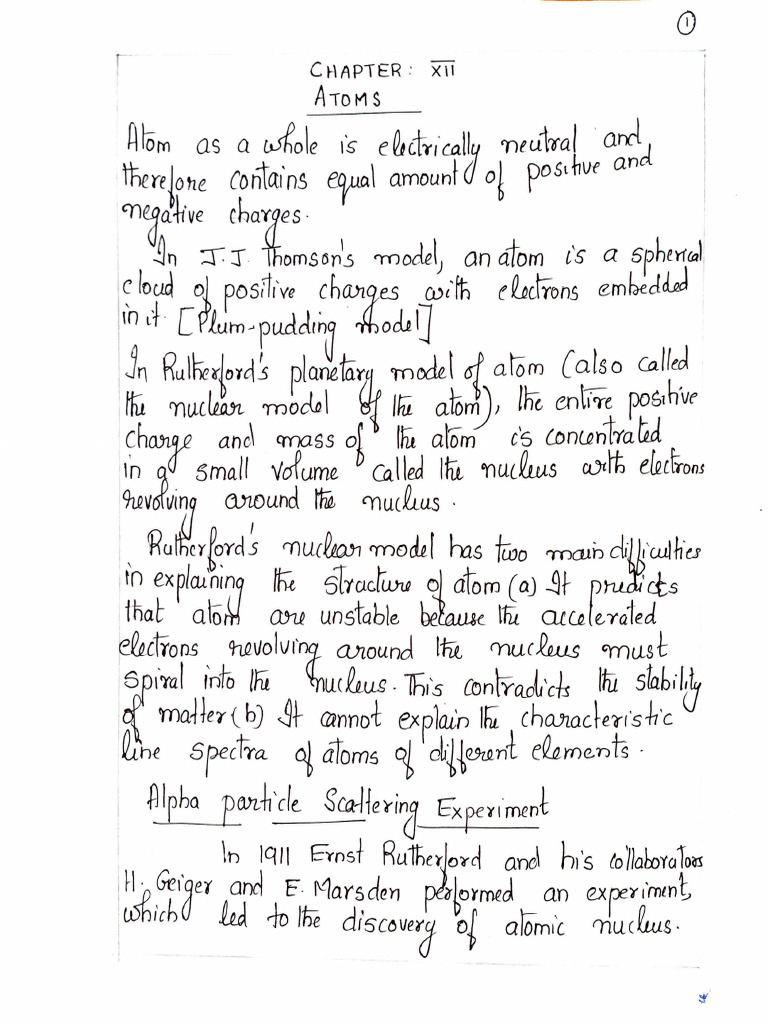 1
CHAPTER: XII
ATOMS
Atom as a whole is electrically neutral and
therefore contains equal amount of positive and
negative charges.
In J.J. Thomson's model, an atom is a spherical
cloud of positive charges with electrons embedded
in it. [Plum-pudding model]
In Rutherford's planetary model of atom (also called
the nuclear model of the atom), the entire positive
charge and mass of the atom is concentrated
in a small volume called the nucleus with electrons
revolving around the nucleus.
Rutherford's nuclear model has two main difficulties
in explaining the structure of atom (a) It predicts
that atom are unstable because the accelerated
electrons revolving around the nucleus must
spiral into the nucleus. This contradicts the stability
of matter (b) It cannot explain the characteristic
line spectra of atoms of different elements.
Alpha particle Scattering Experiment
In 1911 Ernst Rutherford and his collaborators
H. Geiger and E. Marsden performed an experiment,
which led to the discovery of atomic nucleus.